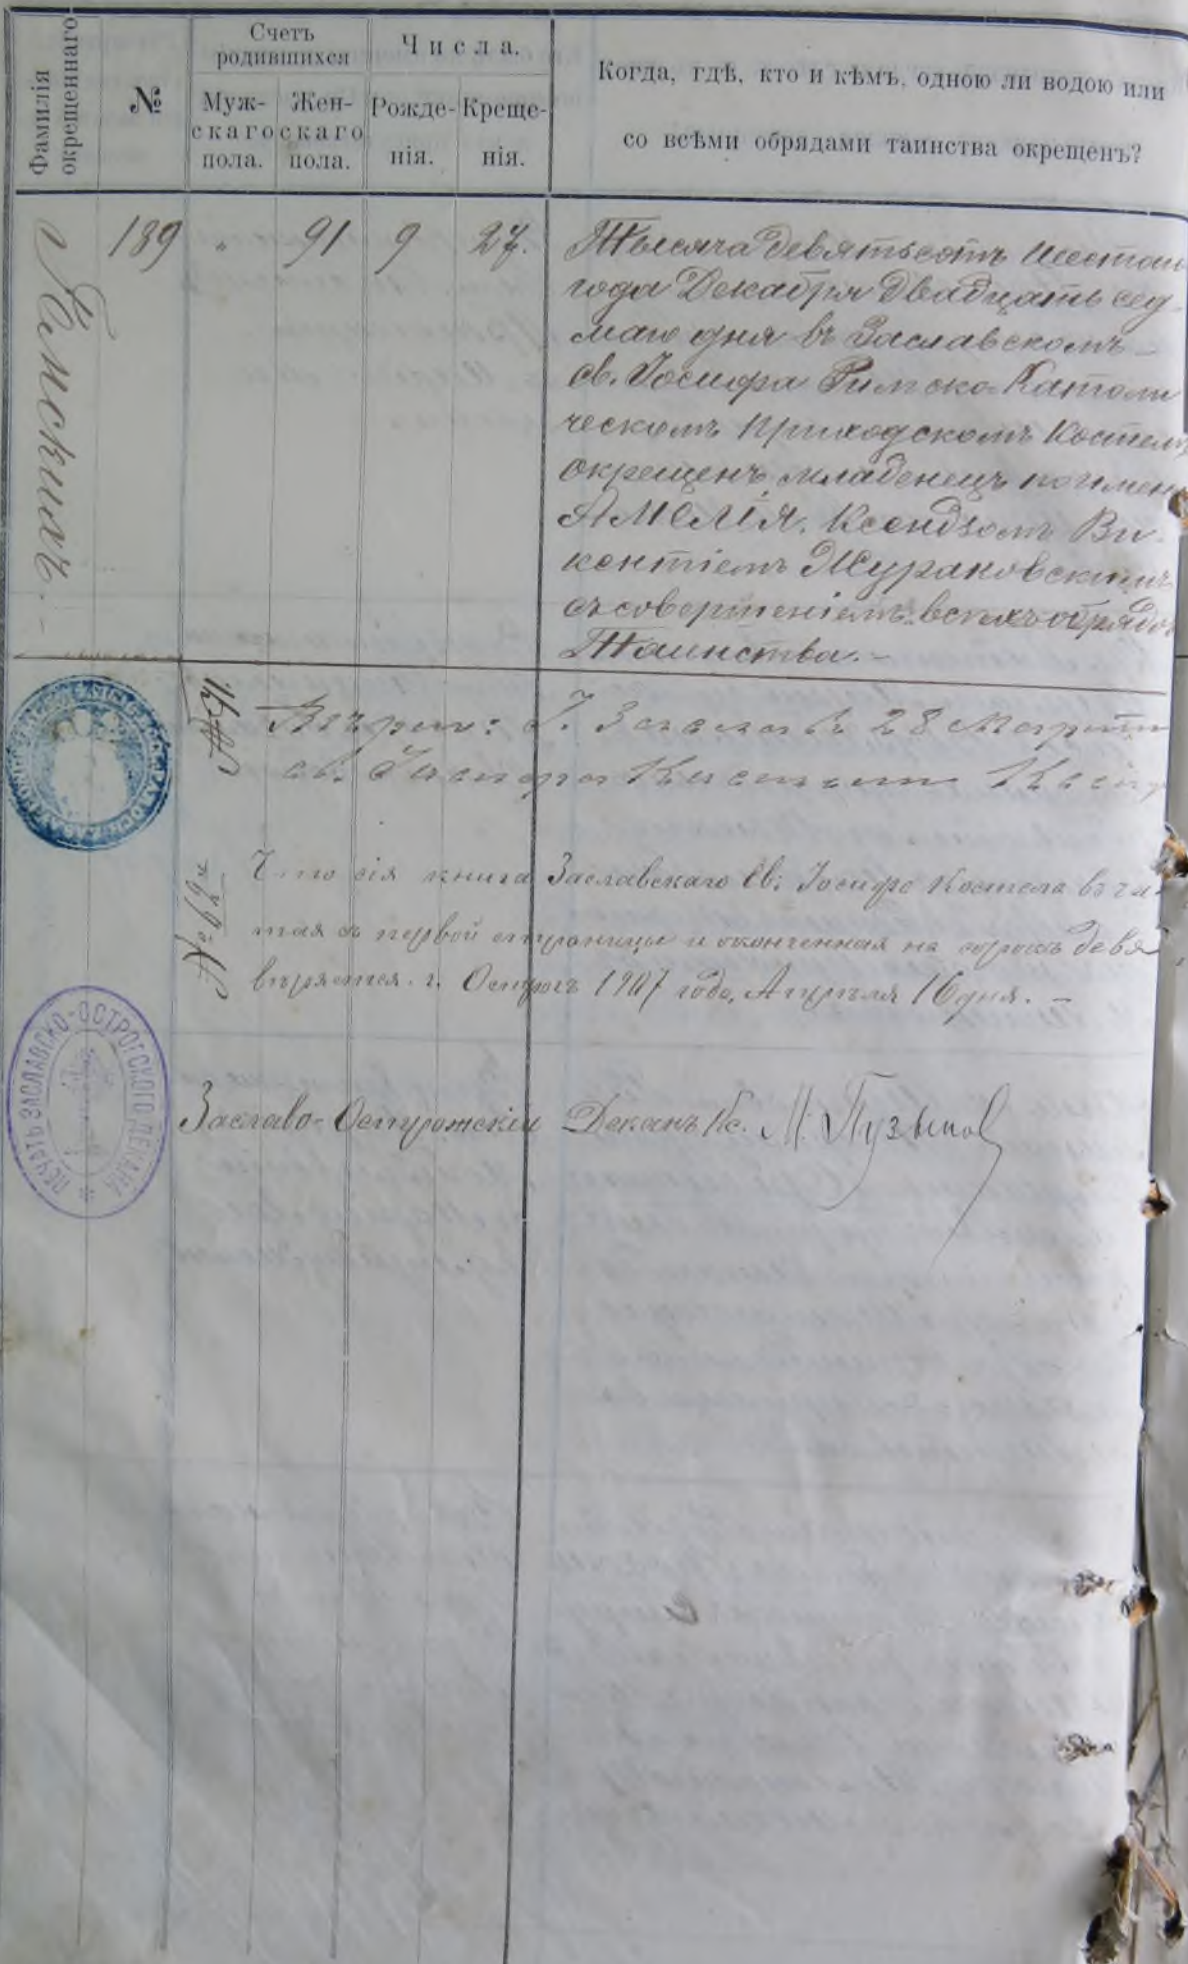 Фамилія окрещеннаго
№
Счетъ родившихся
Муж-скаго пола.
Жен-скаго пола.
Числа.
Рожде-нія.
Креще-нія.
Когда, гдѣ, кто и кѣмъ, одною ли водою или
со всѣми обрядами таинства окрещенъ?
189 " 91 9 27.
Тысяча девятьсотъ шестаго
года Декабря двадцать сед-
маго дня въ Заславскомъ
св. Іосифа Римско Католи
ческомъ приходскомъ Костелѣ
окрещенъ младенецъ по имени
Амелія. Ксендзомъ Ви-
кентіемъ Жураковскимъ
съ совершеніемъ всѣхъ обрядов
Таинства. -
№ 51.
Вѣрно: Г. Заславъ 28 Марта
св. Іосифа
Что сія книга Заславскаго Св: Іосифа Костела
тая съ первой страницы и оконченная на сорокъ девя
вѣряется. г. Острогъ 1907 года, Апрѣля 16 дня. -
Заславо-Острожскій Деканъ Кс. М.
ПЕЧАТЬ ЗАСЛАВСКО-ОСТРОГСКОГО ДЕКАНА